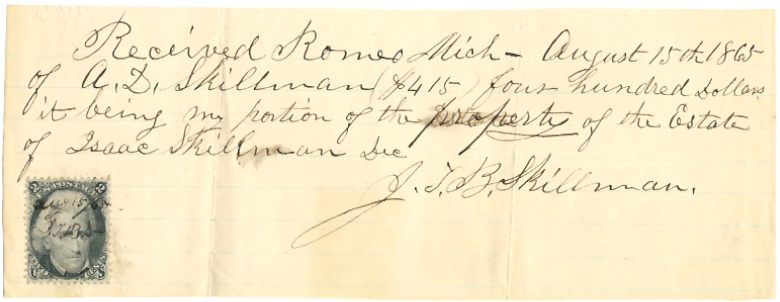 Received Romeo Mich - August 15th 1865
of A. D. Skillman ($415) four hundred Dollars
it being my portion of the property of the Estate
of Isaac Skillman Dec
J. T. B. Skillman.
Aug 15/65